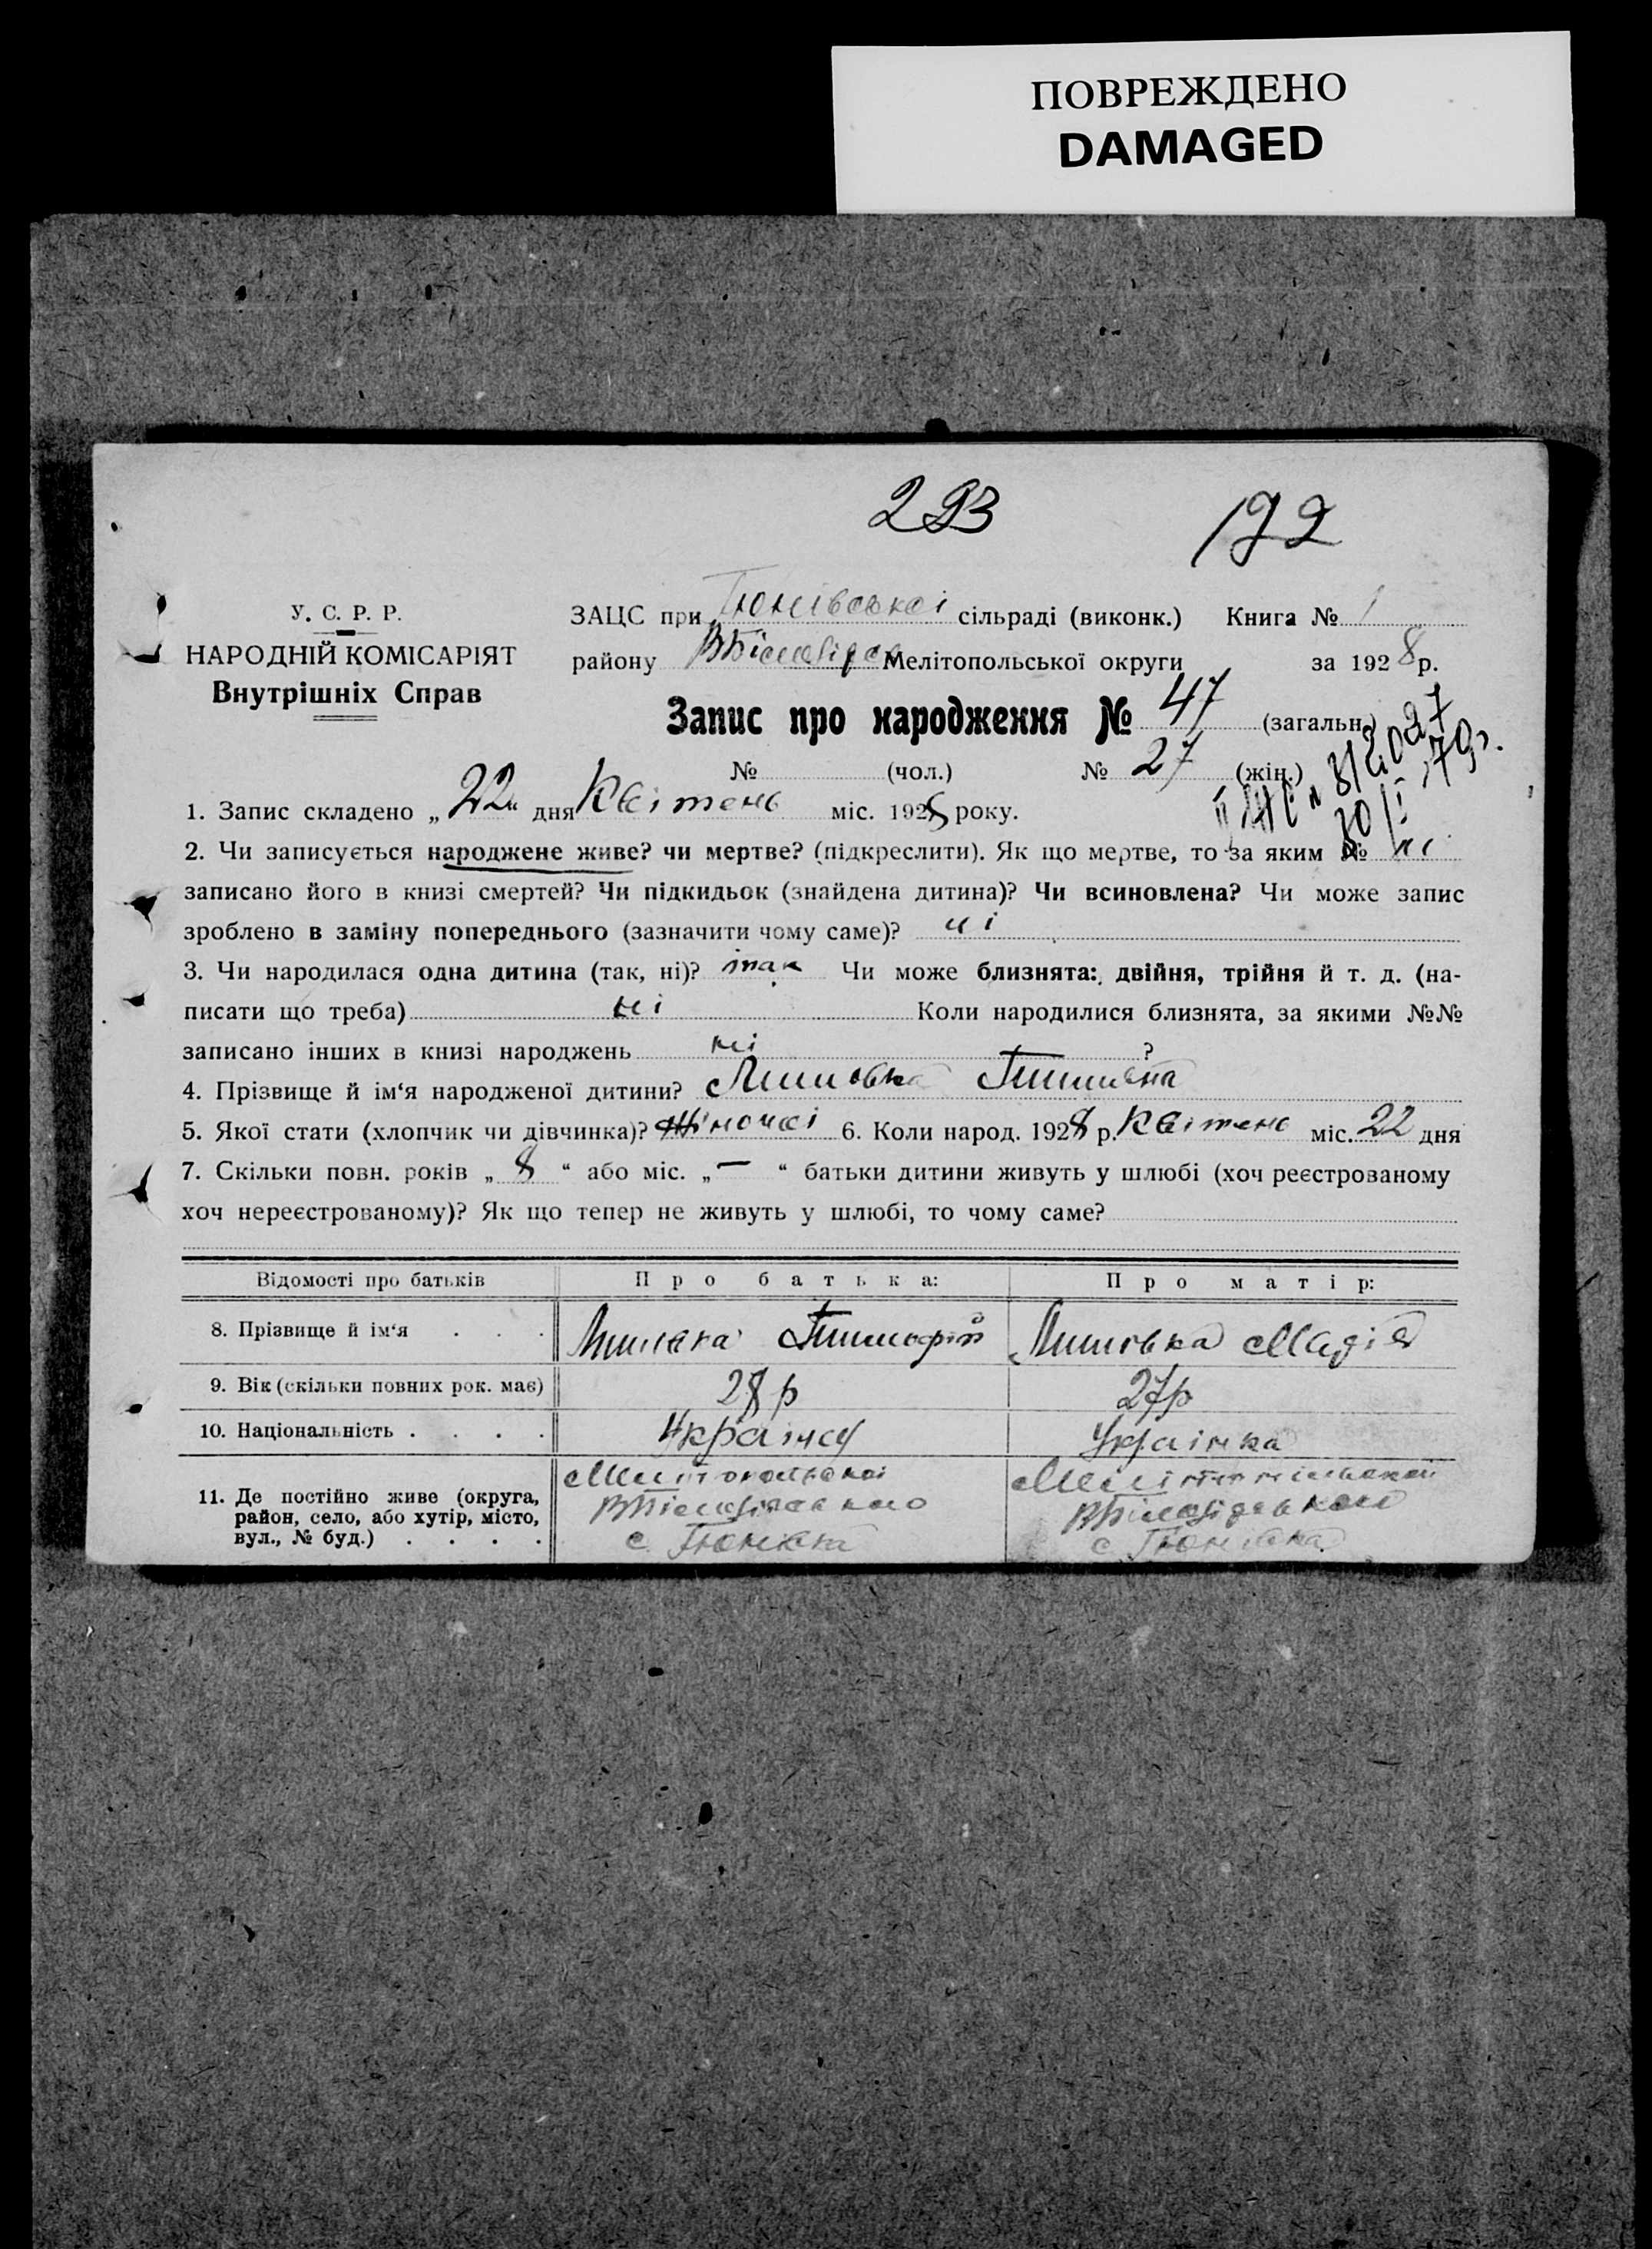 ПОВРЕЖДЕНО
DAMAGED
293
172
У. С. Р. Р.
НАРОДНІЙ КОМІСАРІЯТ
Внутрішніх Справ
ЗАЦС при сільраді (виконк.) Книга № 1
району Мелітопольської округи за 1928 р.
Запис про народження № 47 (загальн.)
№ (чол.) № 27 (жін.)
1. Запис складено „ 22 " дня Квітень міс. 1928 року.
2. Чи записується народжене живе? чи мертве? (підкреслити). Як що мертве, то за яким № ні
записано його в книзі смертей? Чи підкидьок (знайдена дитина)? Чи всиновлена? Чи може запис
зроблено в заміну попереднього (зазначити чому саме)? ні
3. Чи народилася одна дитина (так, ні)? так Чи може близнята: двійня, трійня й т. д. (на-
писати що треба) ні Коли народилися близнята, за якими №№
записано інших в книзі народжень ні ?
4. Прізвище й ім‘я народженої дитини?
5. Якої стати (хлопчик чи дівчинка)? жіночої 6. Коли народ. 1928 р. Квітень міс. 22 дня
7. Скільки повн. років „ 8 “ або міс. „ — “ батьки дитини живуть у шлюбі (хоч реєстрованому
хоч нереєстрованому)? Як що тепер не живуть у шлюбі, то чому саме?
Відомості про батьків Про батька: Про матір:
8. Прізвище й ім‘я . . . Тимофій Марія
9. Вік (скільки повних рок. має) 28 р 27 р
10. Національність . . . . Українец Українка
11. Де постійно живе (округа,
район, село, або хутір, місто,
вул., № буд.) . . . .
Мелітопольської
с. Тюнівка
Мелітопільської
с. Тюнівка